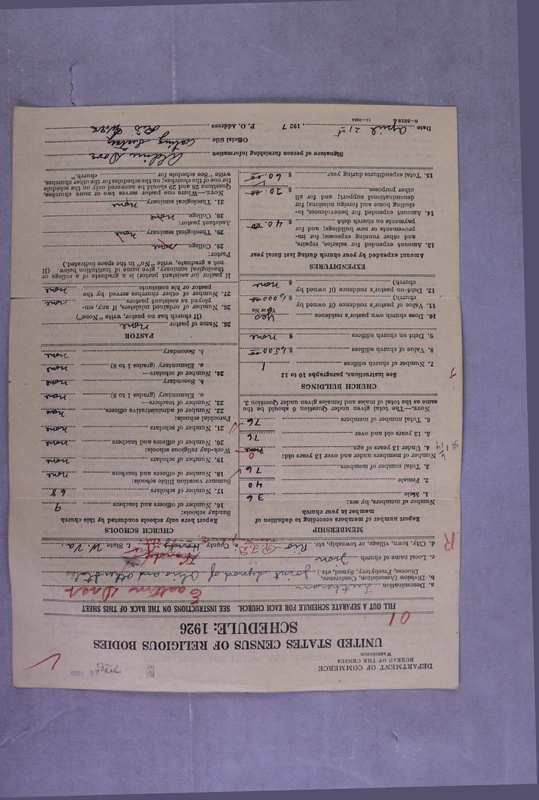 DEPARTMENT OF COMMERCE
BUREAU OF THE CENSUS
WASHINGTON
UNITED STATES CENSUS OF RELIGIOUS BODIES
SCHEDULE: 1926
01
FILL OUT A SEPARATE SCHEDULE FOR EACH CHURCH. SEE INSTRUCTIONS ON THE BACK OF THIS SHEET
a. Denomination Lutheran
b. Division (Association, Conference, Diocese, Presbytery, Synod, etc.) Joint Synod of Ohio and other States
Eastern Dist
c. Local name of church
d. City, town, village, or township, etc. Rio e. County Hardy f. State W. Va.
R
MEMBERSHIP
Report number of members according to definition of member in your church
Number of members, by sex:
1. Male 36
2. Female 40
3. Total number of members 76
Number of members under and over 13 years old:
4. Under 13 years of age 0
5. 13 years old and over 76
6. Total number of members 76
NOTE.—The total given under Question 6 should be the same as the total of males and females given under Question 3.
CHURCH BUILDINGS
See Instructions, paragraphs 10 to 12
7. Number of church edifices 1
8. Value of church edifices $ 4,500.00
9. Debt on church edifices $ none
10. Does church own pastor's residence yes
(Yes or No)
11. Value of pastor's residence (if owned by church)
12. Debt on pastor's residence (if owned by church) $ none
EXPENDITURES
Amount expended by your church during last fiscal year
13. Amount expended for salaries, repairs, and other running expenses; for improvements or new buildings; and for payments on church debt $ 40.00
14. Amount expended for benevolences, including home and foreign missions; for denominational support; and for all other purposes. $ 20.00
15. Total expenditures during year $ 60.00
CHURCH SCHOOLS
Report here only schools conducted by this church
Sunday schools:
16. Number of officers and teachers 9
17. Number of scholars 68
Summer vacation Bible schools:
18. Number of officers and teachers none
19. Number of scholars
Week-day religious schools:
20. Number of officers and teachers none
21. Number of scholars none
Parochial schools:
22. Number of administrative officers none
23. Number of teachers—
a. Elementary (grades 1 to 8) none
b. Secondary none
24. Number of scholars—
a. Elementary (grades 1 to 8) none
b. Secondary none
PASTOR
25. Name of pastor none
(If church has no pastor, write "None")
26. Number of ordained ministers, if any, employed as assistant pastors none
27. Number of other churches served by the pastor or his assistants none
If pastor (or assistant pastor) is a graduate of a college or theological seminary, give name of institution below. (If not a graduate, write "No" in the space indicated.)
Pastor:
28. College none
29. Theological seminary none
Assistant pastor:
30. College none
31. Theological seminary none
NOTE.—When one pastor serves two or more churches, Questions 28 and 29 should be answered only on the schedule for one of the churches; on the schedules for the other churches, write "See schedule for church."
Signature of person furnishing information
Official title
Date April 21st 1927 P. O. Address Rio W.Va